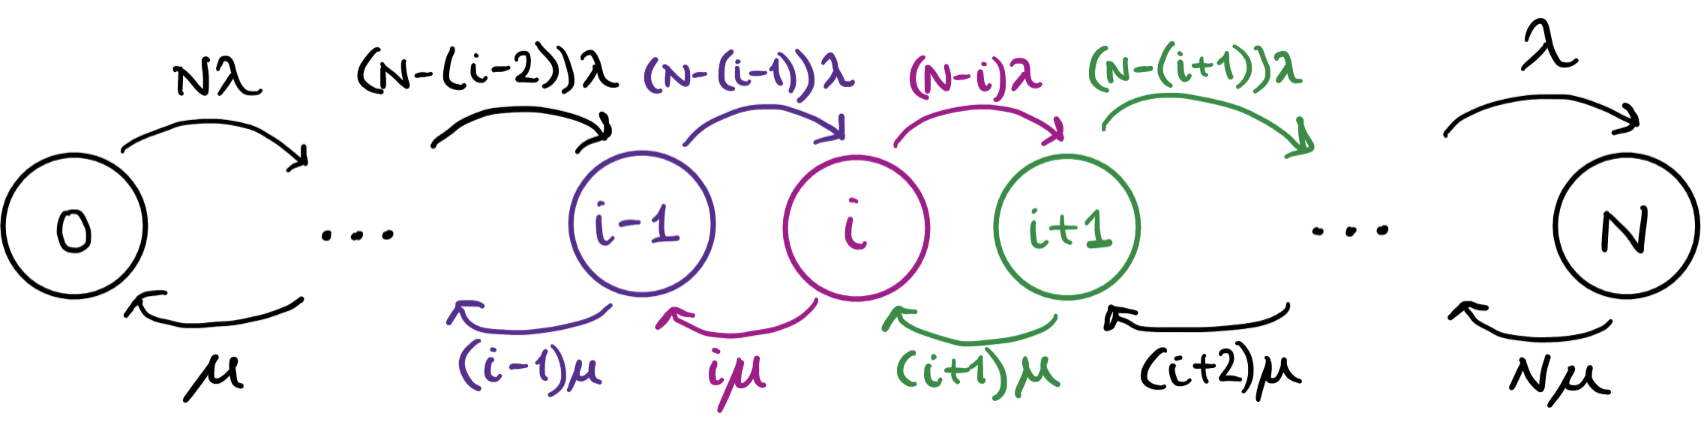 Nλ (N-(i-2))λ (N-(i-1))λ (N-i)λ (N-(i+1))λ λ
0 ... i-1 i i+1 ... N
μ (i-1)μ iμ (i+1)μ (i+2)μ Nμ